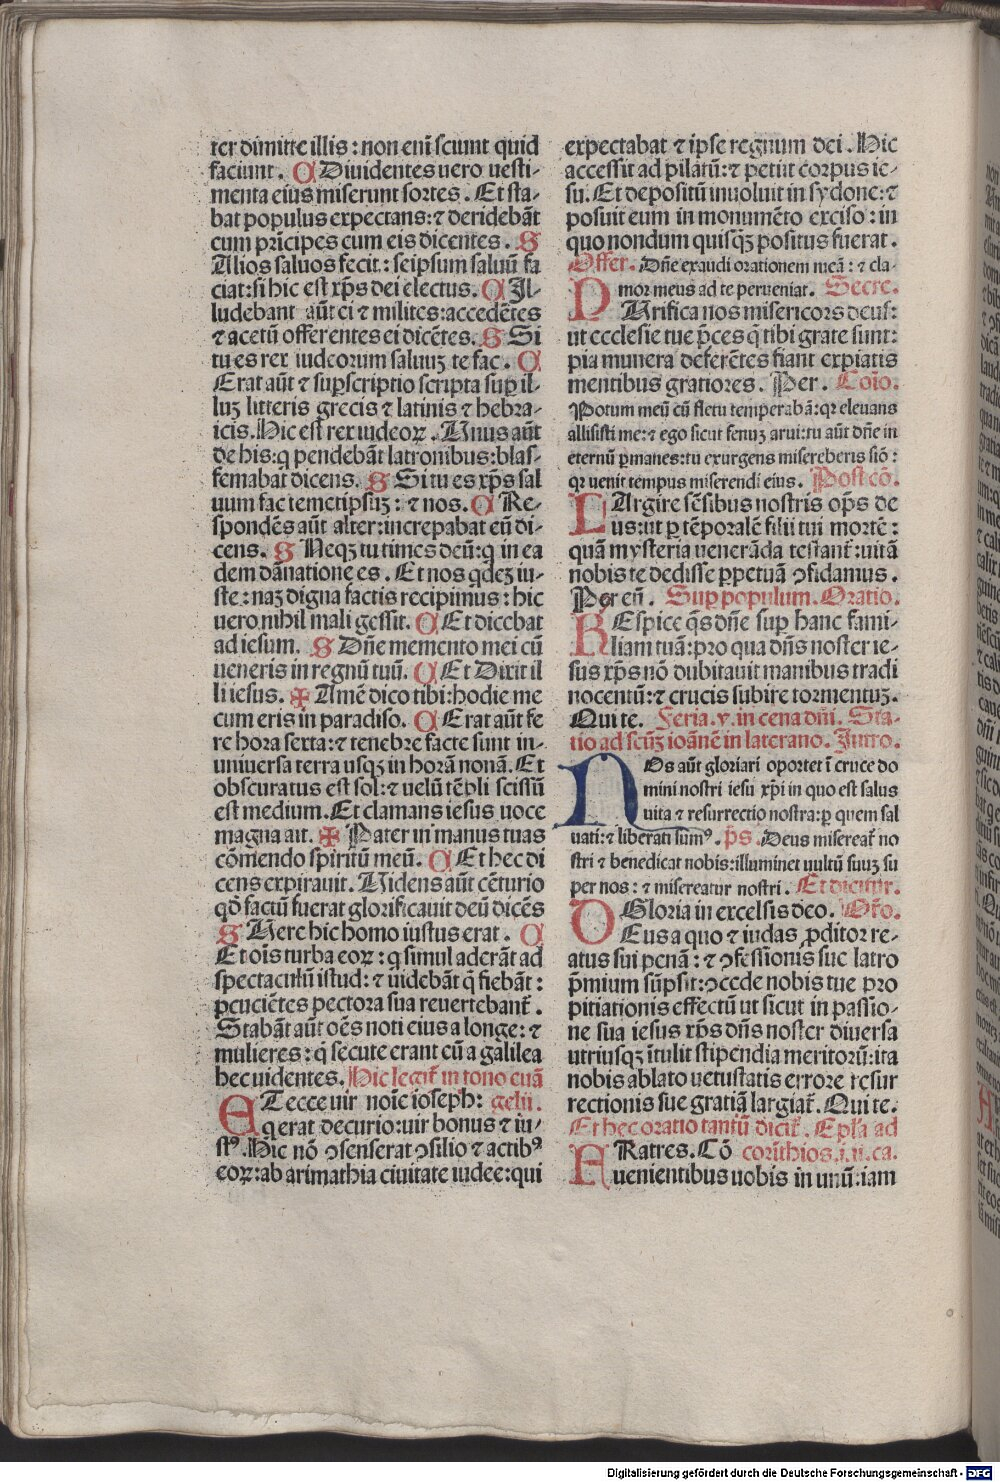 ter dimitte illis : non eni͂ sciunt quid
faciunt . C Diuidentes uero uesti-
menta eius miserunt sortes . Et sta-
bat populus expectans: ⁊ deridebāt
eum prīcipes cum eis dicentes . S
Alios saluos fecit : seipsum saluū fa
ciat: si hic est xp̄s dei electus. C Il-
ludebant aūt ei ⁊ milites: accedētes
⁊ acetū offerentes ei dicētes. S Si
tu es rex iudeorum saluuꝫ te fac . C
Erat aūt ⁊ suꝑscriptio scripta suꝑ il-
luꝫ litteris grecis ⁊ latinis ⁊ hebra-
icis. Hic est rex iudeoꝝ . Unus aūt
de his: q̄ pendebāt latronibus: blas-
femabat dicens. S Si tu es xp̄s sal
uum fac temetipsuꝫ : ⁊ nos. C Re-
spondēs aūt alter: increpabat eū di-
cens. S Neqꝫ tu times deū: q̄ in ea
dem dānatione es . Et nos qdeꝫ iu-
ste : naꝫ digna factis recipimus : hic
uero nihil mali gessit. C Et dicebat
ad iesum. S Dn̄e memento mei cū
ueneris in regnū tuū. C Et Dixit il
li iesus. ✠ Amē dico tibi: hodie me
cum eris in paradiso. C Erat aūt fe
re hora sexta: ⁊ tenebre facte sunt in-
uniuersa terra usqꝫ in horā nonā. Et
obscuratus est sol: ⁊ uelū tēpli scissū
est medium. Et clamans iesus uoce
magna ait. ✠ Pater in manus tuas
cōmendo spiritū meū. C Et hec di
cens expirauit. Uidens aūt cēturio
qd̄ factū fuerat glorificauit deū dicēs
S Uere hic homo iustus erat . C
Et oīs turba eoꝝ : q̄ simul aderāt ad
spectaculū istud: ⁊ uidebāt q̄ fiebāt :
ꝑcuciētes pectora sua reuertebant̄ .
Stabāt aūt oēs noti eius a longe: ⁊
mulieres : q̄ secute erant eū a galilea
hec uidentes. Hic legit̄ in tono euā
ET ecce uir noīe ioseph: gelii.
q erat decurio: uir bonus ⁊ iu-
stꝰ. Hic nō ↄsenserat ↄsilio ⁊ actibꝰ
eoꝝ: ab arimathia ciuitate iudee: qui
expectabat ⁊ ipse regnum dei . Hic
accessit ad pilatū: ⁊ petiit corpus ie-
su. Et depositū inuoluit in sydone: ⁊
posuit eum in monumēto exciso : in
quo nondum quisqꝫ positus fuerat .
Offer. Dn̄e exaudi orationem meā : ⁊ cla-
mor meus ad te perueniat. Secre.
PUrifica nos misericors deus:
ut ecclesie tue p̄ces q̄ tibi grate sunt:
pia munera deferētes fiant expiatis
mentibus gratiores. Per. Coīo.
Potum meū cū fletu temperabā: qꝛ eleuans
allisisti me: ⁊ ego sicut fenuꝫ arui: tu aūt dn̄e in
eternū ꝑmanes: tu exurgens misereberis siō :
qꝛ uenit tempus miserendi eius. Post cō.
LArgire sēsibus nostris op̄s de
us: ut ꝑ tēporalē filii tui mortē :
quā mysteria uenerāda testant̄: uitā
nobis te dedisse ꝑpetuā ↄfidamus .
Per eū. Suꝑ populum. Oratio.
REspice q̄s dn̄e suꝑ hanc fami-
liam tuā: pro qua dn̄s noster ie-
sus xp̄s nō dubitauit manibus tradi
nocentū: ⁊ crucis subire tormentuꝫ.
Qui te. Feria. v. in cena dn̄i. Sta-
tio ad scūꝫ ioānē in laterano. Intro.
NOs aūt gloriari oportet ī cruce do
mini nostri iesu xp̄i in quo est salus
uita ⁊ resurrectio nostra: ꝑ quem sal
uati: ⁊ liberati sumꝰ . p̄s. Deus misereat̄ no
stri ⁊ benedicat nobis: illuminet uultū suuꝫ su
per nos : ⁊ misereatur nostri . Et dicitur.
Gloria in excelsis deo. Or̄o.
DEus a quo ⁊ iudas ꝓditor re-
atus sui penā : ⁊ ↄfessionis sue latro
p̄mium sūpsit: ↄcede nobis tue pro
pitiationis effectū ut sicut in passio-
ne sua iesus xp̄s dn̄s noster diuersa
utriusqꝫ ītulit stipendia meritorū: ita
nobis ablato uetustatis errore resur
rectionis sue gratiā largiat̄. Qui te.
Et hec oratio tantū dicit̄. Epl̄a ad
FRatres. Cō corīthios. i. ii. ca.
uenientibus uobis in unū: iam
Digitalisierung gefördert durch die Deutsche Forschungsgemeinschaft - DFG